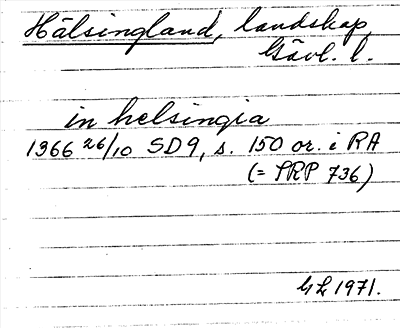 Hälsingland, landskap,
Gävl. l.
in helsingia
1366 26/10 SD9, s. 150 or. i RA
(= SRP 736)
GL 1971.